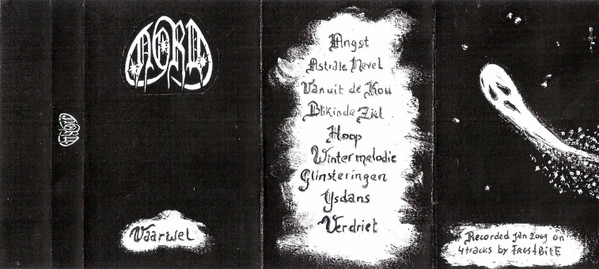 NORD
NORD
Vaarwel
Angst
Astrale Nevel
Vanuit de Kou
Blik in de Ziel
Hoop
Wintermelodie
Glinsteringen
Ijsdans
Verdriet
Recorded jan 2009 on
4tracks by FrostBitE